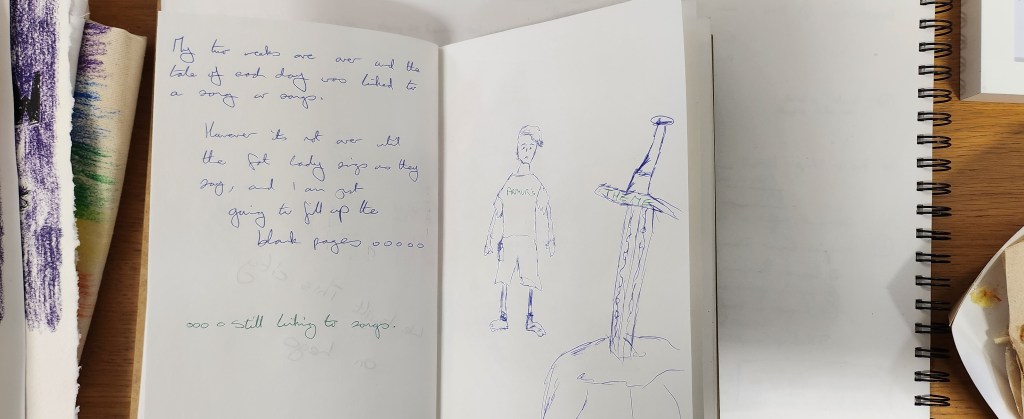 My two weeks are over and the
tale of each day was linked to
a song or songs.
However its not over until
the fat lady sings as they
say, and I am just
going to fill up the
blank pages ooooo
ooo o still linking to songs.